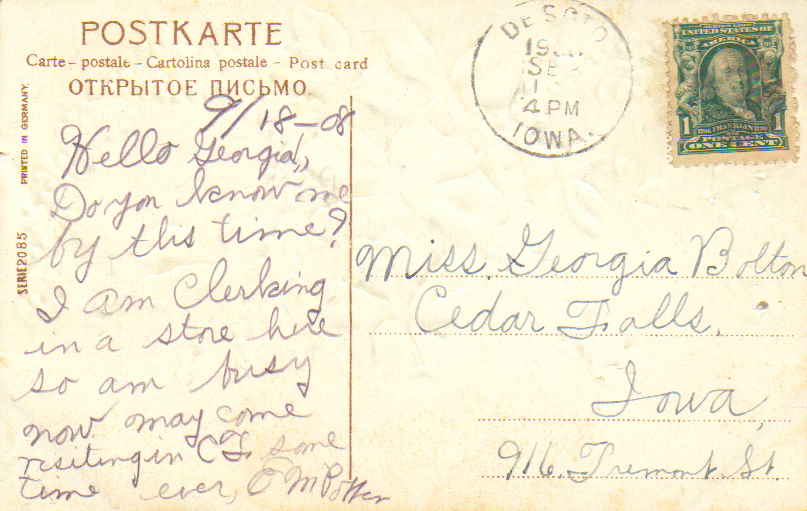 POSTKARTE
Carte - postale - Cartolina postale - Post card
ОТКРЫТОЕ ПИСЬМО.
9/18-08
Hello Georgia,,
Do you know me
by this time?
I am Clerking
in a store here
so am busy
now may come
visiting in C F. some
time ever, O M Potter
PRINTED IN GERMANY
SERIE 2085
DE SOTO
SE
4 PM
IOWA.
UNITED STATES OF
AMERICA
1 1
POSTAGE
ONE CENT
Miss. Georgia Bolton
Cedar Falls,
Iowa,
916. Tremont. St.